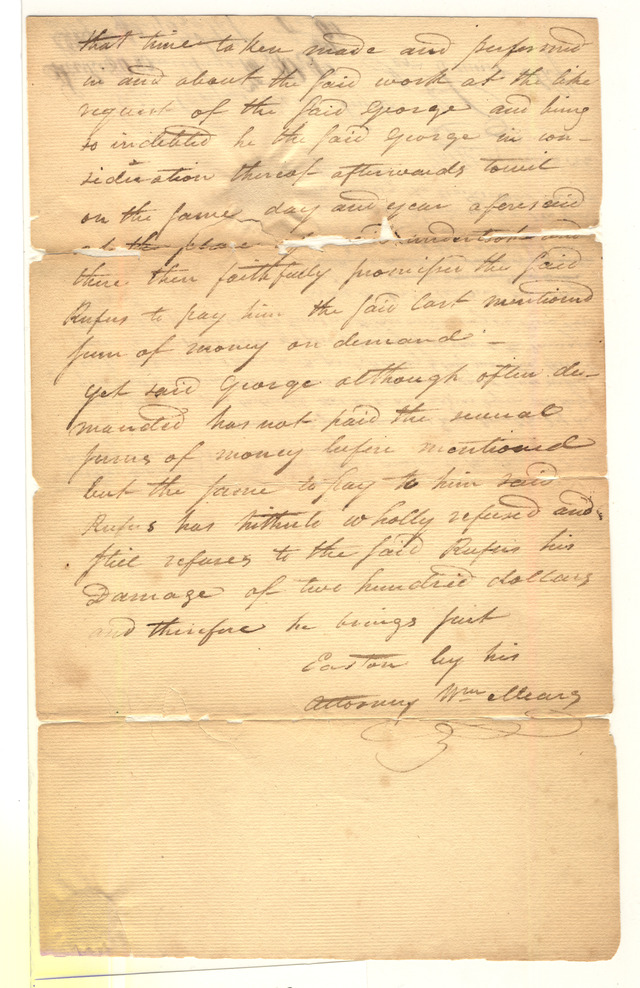 that time taken made and performed
in and about the said work at the like
request of the said George and being
so indebted he the said George in con-
sideration thereof afterwards towit
on the same day and year aforesaid
at the place
there then faithfully promised the said
Rufus to pay him the said last mentioned
sum of money on demand. -
Yet said George although often de-
manded has not paid the several
sums of money before mentioned
but the same to pay to him said
Rufus has hitherto wholly refused and
still refuses to the said Rufus his
Damage of two hundred dollars
and therefore he brings suit
Easton by his
Attorney Wm Mears